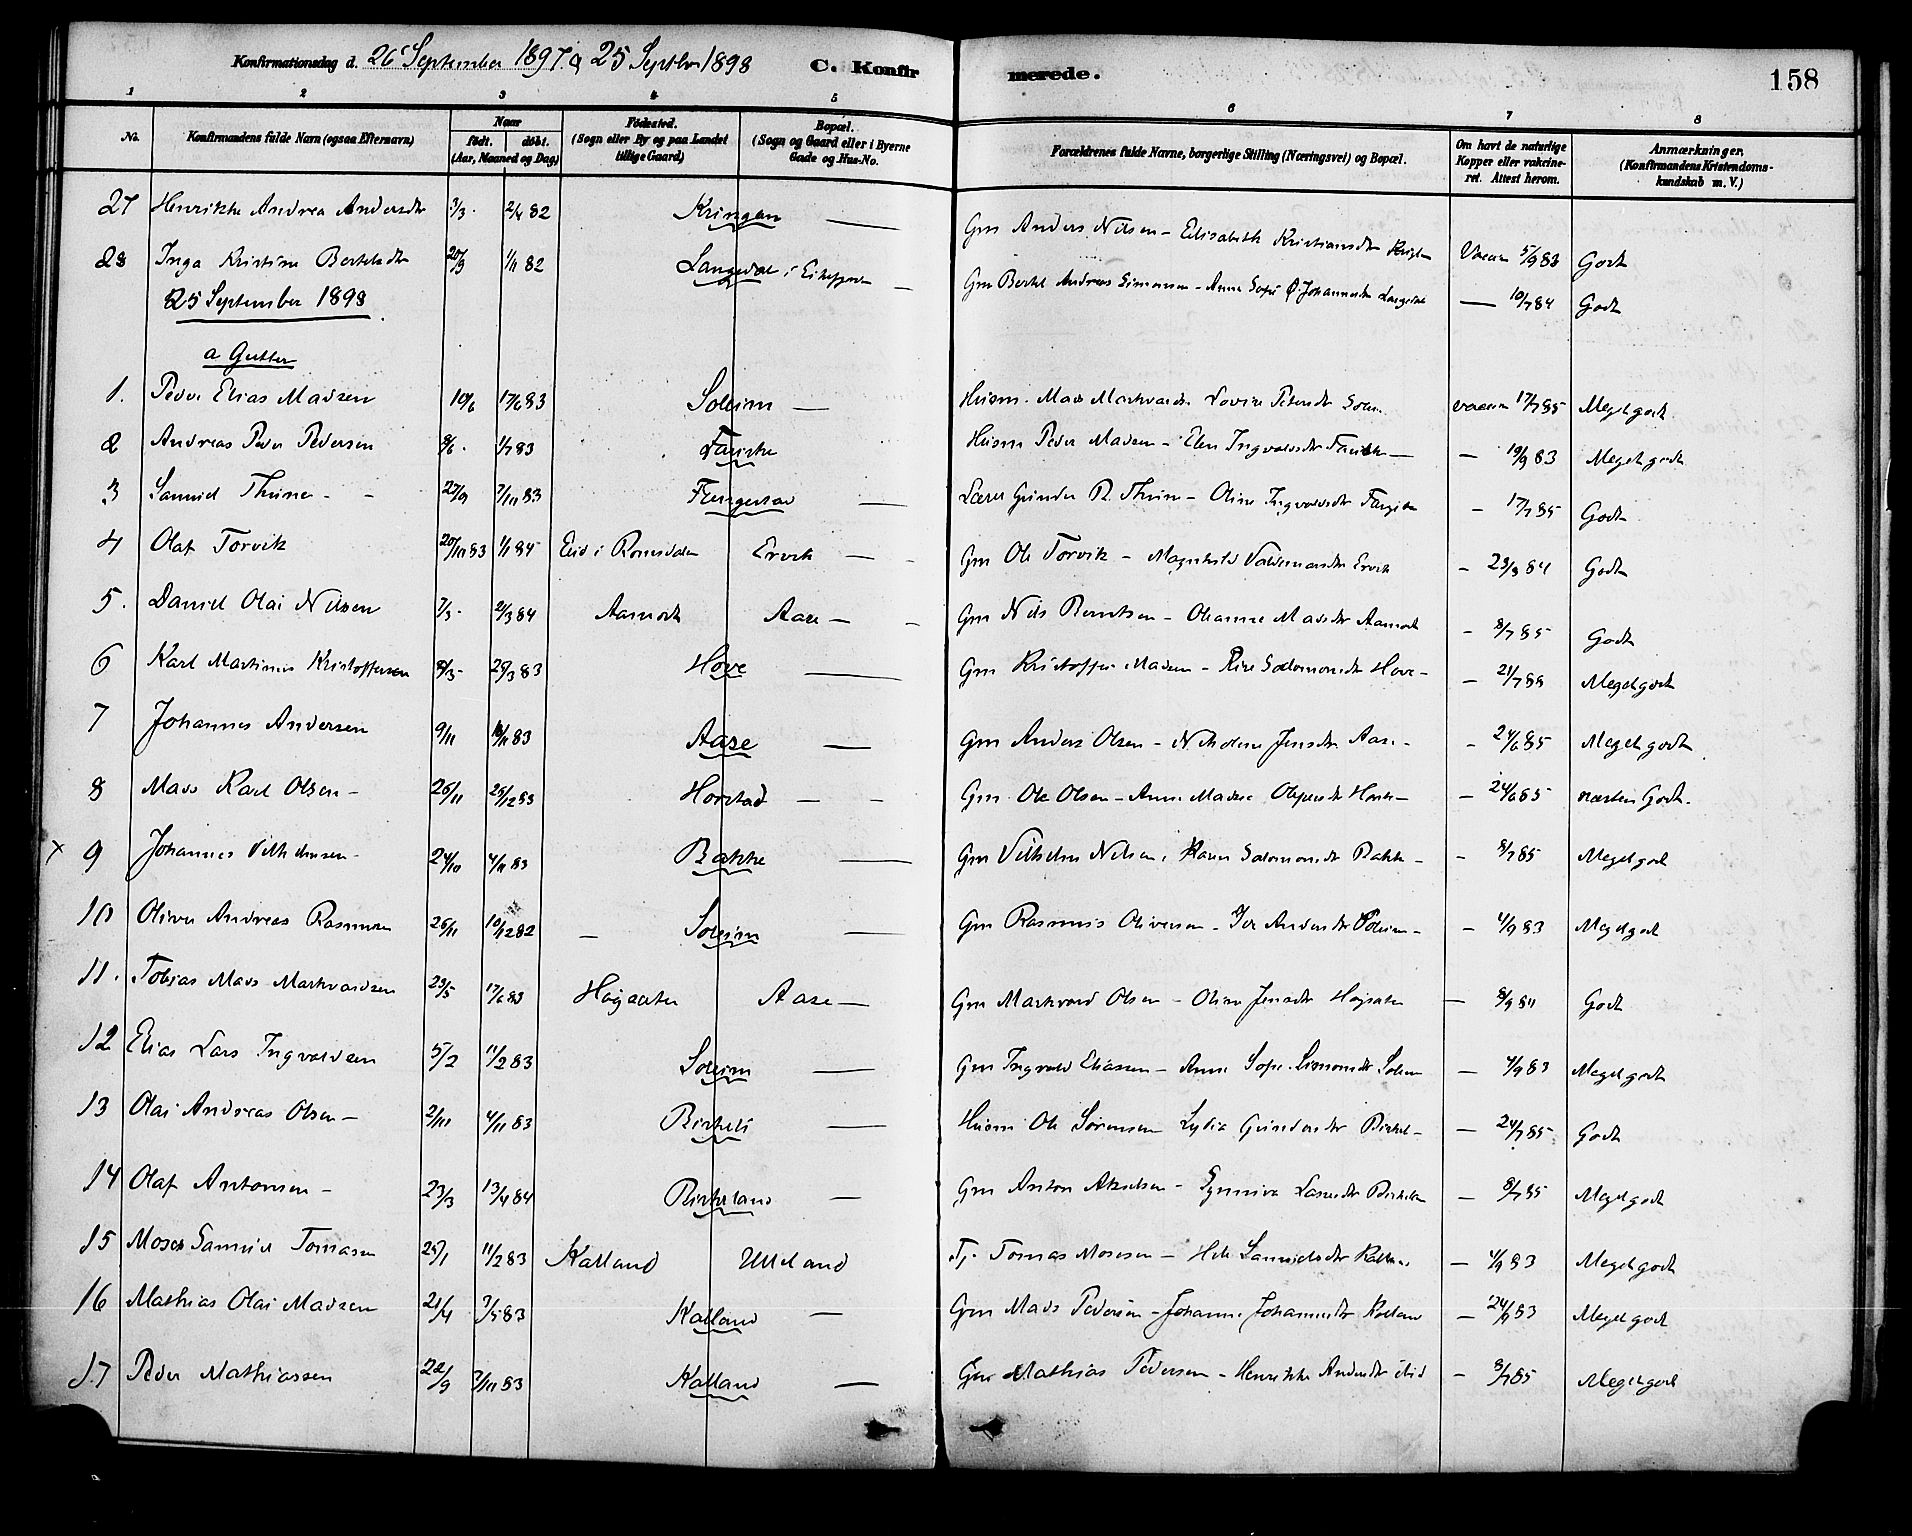 Konfirmationsdag d. 26 September 1897 & 25 Septbr 1898 C. Konfirmerede. 158
1 2 3 4 5 6 7 8
No. Konfirmandens fulde Navn (ogsaa Efternavn) Naar født. døbt. (Aar, Maaned og Dag) Fødested. (Sogn eller By og paa Landet tillige Gaard) Bopæl. (Sogn og Gaard eller i Byerne Gade og Hus-No. Forældrenes fulde Navne, borgerlige Stilling (Næringsvei) og Bopæl. Om havt de naturlige Kopper eller vakcineret. Attest herom. Anmærkninger, (Konfirmandens Kristendomskundskab m. V.)
27 Henrikke Andrea Andersdtr 3/3 2/4 82 Kringen — Gm Anders Nilsen – Elisabeth Kristiansdtr Vaccin 5/9 83 Godt
28 Inga Kristine Bertelsdtr 20/9 1/11 82 Langedal i — Gm Bertel Andreas Simonsen – Anne Sofie Johannesdtr — 10/7 84 Godt
25 September 1898
a Gutter
1. Peder Elias Madsen 10/6 17/6 83 Soleim — Husm. Mads Markvardsen Lovise Petersdtr vaccin 17/7 85 Meget godt
2 Andreas Peder Pedersen 8/6 1/7 83 — Husm Peder Madsen – Elen Ingvaldsdtr — – 19/9 83 Meget godt
3 Samuel Thune 27/9 7/10 83 — Lærer Gunder R. Thune – Oline Ingvaldsdtr – 17/7 85 Godt
4 Olaf Torvik 20/10 83 1/1 84 Eid i Romsdalen Ervik — Gm Ole Torvik – Magnhild Valdemarsdtr Ervik – 23/3 84 Godt
5. Daniel Olai Nilsen 7/3 2/3 84 Aamodt Aase — Gm Nils Berntsen – Oleanne Madsdtr Aamodt – 8/7 85 Godt
6 Karl Martinus Kristoffersen 8/3 25/3 83 Hove — Gm Kristoffer Madsen – Salomonsdtr Hove – – 21/7 Meget godt
7 Johannes Andersen 9/11 83 Aase — Gm Anders Olsen – Nikoline Jensdtr Aase – – 24/6 85 Meget godt
8 Mads Karl Olsen – 26/11 26/12 83 Horstad — Gm Ole Olsen – Anne — – 24/6 85 næsten Godt.
x 9 Johannes Vilhelmsen – 24/10 4/11 83 Bakke — Gm Vilhelm Nilsen, Karen Salomonsdtr Bakke – – 8/7 85 Meget godt
10 Oliver Andreas Rasmusen 26/11 10/12 82 — Soleim — Gm Rasmus Oliversen – Andersdtr Soleim – – 4/9 83 Meget godt
11. Tobias Mads Markvardsen 23/5 17/6 83 Høgsæter Aase — Gm Markvard Olsen – Oline Jensdtr Høgsæter — 8/9 84 Godt
12 Elias Lars Ingvaldsen 5/2 11/2 83 Soleim — Gm Ingvald Eliassen – Anne Sofie Simonsdtr Soleim — 4/9 83 Meget godt
13 Olai Andreas Olsen – 2/10 4/11 83 Birkeli — Husm Ole Sørensen Lydia Gundersdtr Birkel – — 24/7 85 Godt
14 Olaf Antonsen – 23/3 13/4 84 Birkeland — Gm Anton Akselsen – Synneva Larsdtr Birkelan – 8/7 85 Meget godt
15 Moses Samuel Tomasen 25/1 11/2 83 Kalland Utteland Tj. Tomas Mosesen – Samuelsdtr Kallan — 4/9 83 Meget godt
16 Mathias Olai Madsen 21/4 3/5 83 Kalland — Gm Mads Pedersen – Johanne Johannesdtr Kalland – 24/9 83 Meget godt
17 Peder Mathiassen 22/9 7/10 83 Kalland — Gm Mathias Pedersen – Henrikke Andersdtr ibid – 3/7 85 Meget godt